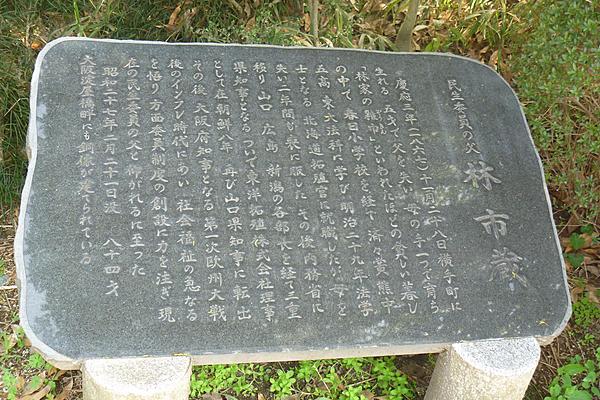 民生委員の父 林市蔵
慶応三年(一八六七)十一月二十八日横手町に
生れる 五才で父を失い 母の手一つで育つ
「林家の雑巾」といわれたほどの貧しい暮し
の中で 春日小学校を経て 済々黌 熊中
五高 東大法科に学び 明治二十九年法学
士となる 北海道拓殖官に就職したが 母を
失い二年間も喪に服した その後内務省に
移り 山口 広島 新潟の各部長を経て三重
県知事となる ついで東洋拓殖株式会社理事
として在朝鮮八年 再び山口県知事に転出
その後 大阪府知事となる 第一次欧州大戦
後のインフレ時代にあい 社会福祉の急なる
を悟り 方面委員制度の創設に力を注ぎ 現
在の民生委員の父と仰がれるに至った
昭和二十七年二月二十一日没 八十四才
大阪淀屋橋畔にも銅像が建てられている